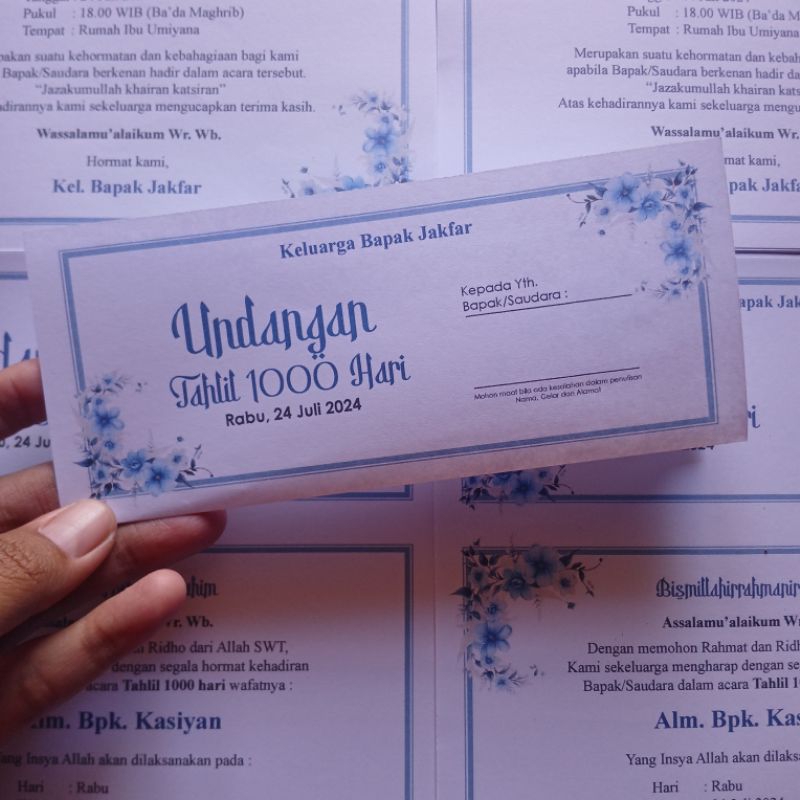 Pukul : 18.00 WIB (Ba'da Maghrib)
Tempat : Rumah Ibu Umiyana
suatu kehormatan dan kebahagiaan bagi kami
Bapak/Saudara berkenan hadir dalam acara tersebut.
"Jazakumullah khairan katsiran"
kami sekeluarga mengucapkan terima kasih.
Wassalamu'alaikum Wr. Wb.
Hormat kami,
Kel. Bapak Jakfar
Pukul : 18.00 WIB (Ba'da
Tempat : Rumah Ibu Umiyana
Merupakan suatu kehormatan dan
apabila Bapak/Saudara berkenan hadir
"Jazakumullah khairan
Atas kehadirannya kami sekeluarga
Wassalamu'alaikum Wr.
kami,
Keluarga Bapak Jakfar
Undangan
Tahlil 1000 Hari
Rabu, 24 Juli 2024
Kepada Yth.
Bapak/Saudara :
Mohon maaf bila ada kesalahan dalam penulisan
Nama, Gelar dan Alamat
, 24
Wr. Wb.
Ridho dari Allah SWT,
dengan segala hormat kehadiran
acara Tahlil 1000 hari wafatnya :
Bpk. Kasiyan
Insya Allah akan dilaksanakan pada :
Hari : Rabu
Assalamu'alaikum
Dengan memohon Rahmat dan
Kami sekeluarga mengharap dengan
Bapak/Saudara dalam acara Tahlil
Alm. Bpk.
Yang Insya Allah akan dilaksanakan
Hari : Rabu